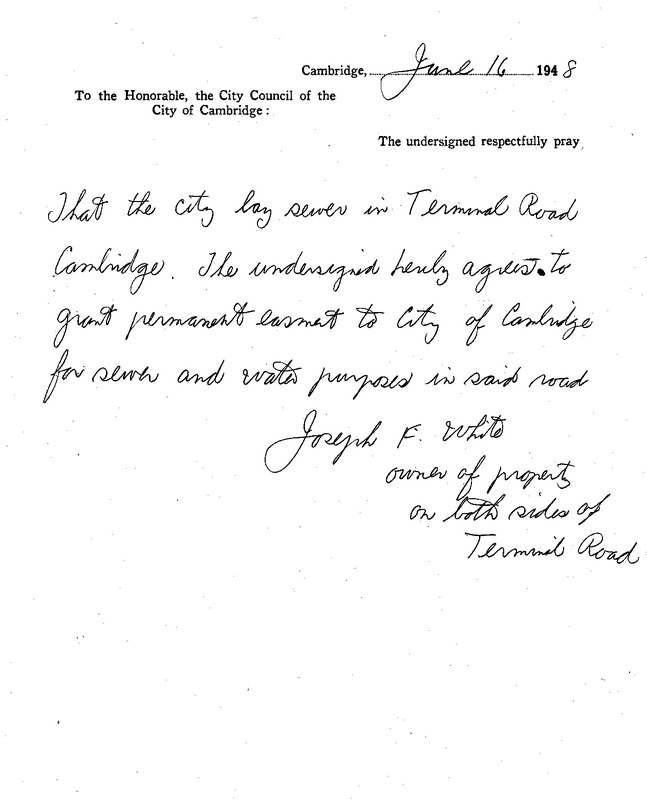 Cambridge, June 16 1948
To the Honorable, the City Council of the
City of Cambridge:
The undersigned respectfully pray
That the city lay sewer in Terminal Road
Cambridge. The undersigned hereby agrees to
grant permanent easment to City of Cambridge
for sewer and water purposes in said road
Joseph F. White
owner of property
on both sides of
Terminal Road